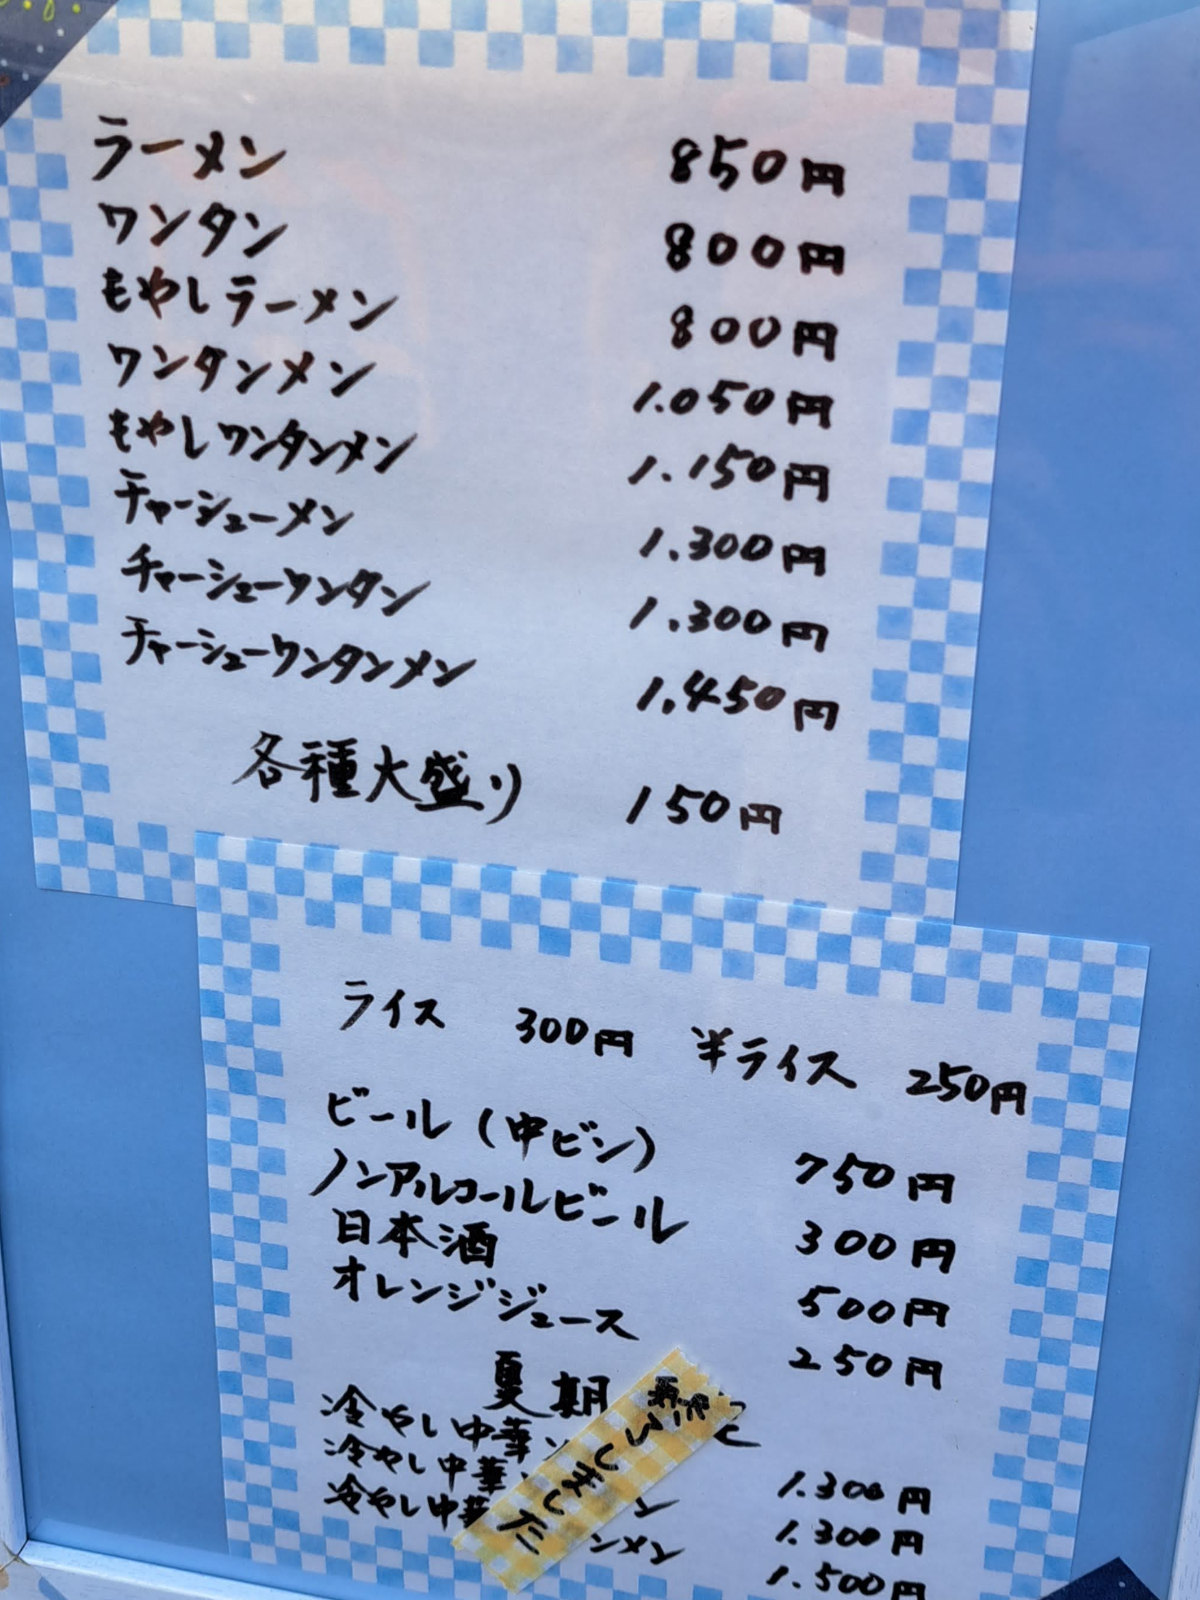 ラーメン 850円
ワンタン 800円
もやしラーメン 800円
ワンタンメン 1.050円
もやしワンタンメン 1.150円
チャーシューメン 1.300円
チャーシューワンタン 1.300円
チャーシューワンタンメン 1.450円
各種大盛り 150円
ライス 300円 半ライス 250円
ビール(中ビン) 750円
ノンアルコールビール 300円
日本酒 500円
オレンジジュース 250円
夏期
冷やし中華 1.300円
冷やし中華 ン 1.300円
冷やし中華 ンメン 1.500円
終了しました